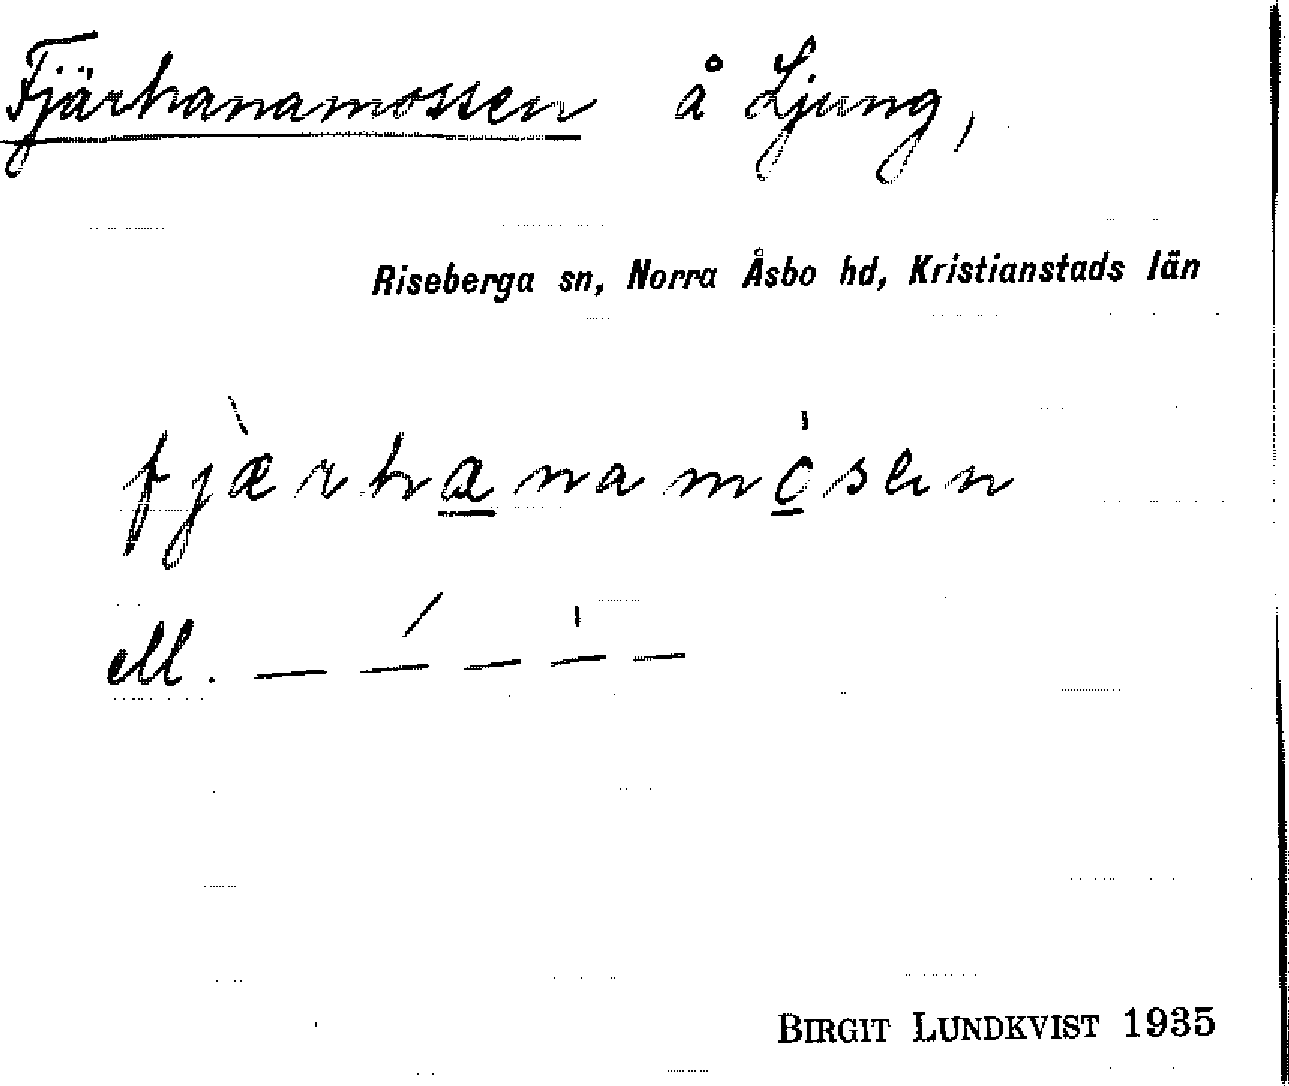 Fjärhanamossen å Ljung,
Riseberga sn, Norra Åsbo hd, Kristianstads län
fjæ̀rha̲namo̲̍sen
ell. — —́ — —̍ —
BIRGIT LUNDKVIST 1935